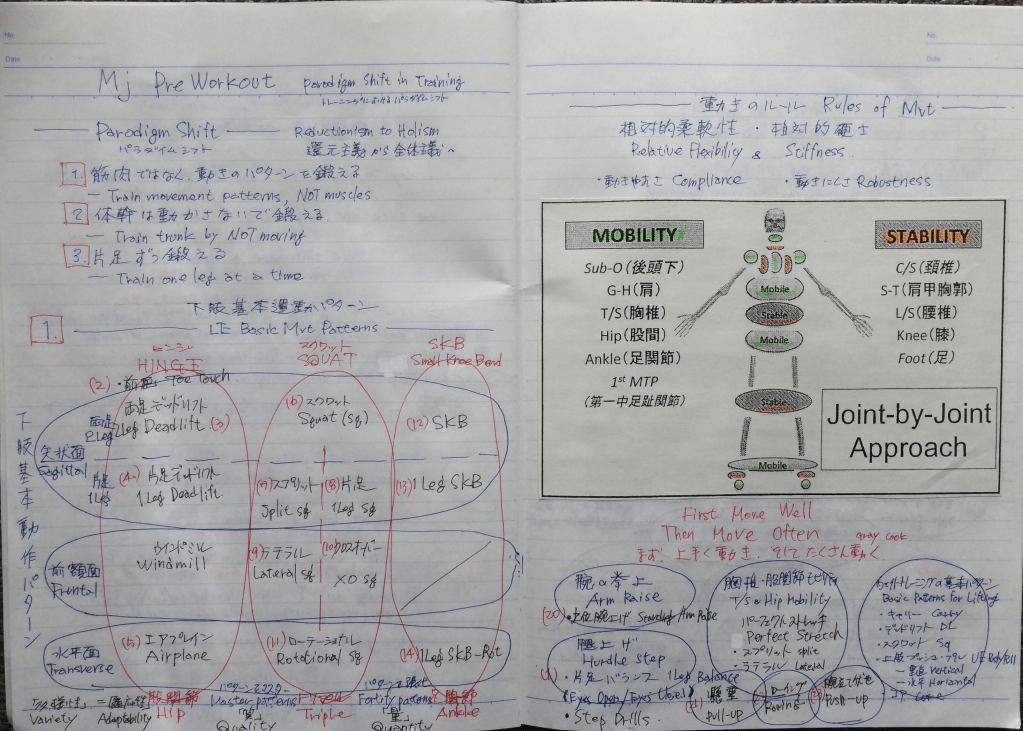 No.
Date
Mj Pre Workout Paradigm Shift in Training
トレーニングにおけるパラダイムシフト
Paradigm Shift Reductionism to Holism
パラダイムシフト 還元主義から全体主義へ
1. 筋肉ではなく、動きのパターンを鍛える
— Train movement patterns, NOT muscles
2. 体幹は動かさないで鍛える
— Train trunk by NOT moving
3. 片足ずつ鍛える
— Train one leg at a time
下肢基本運動パターン
1. LE Basic Mvt Patterns
ヒンジ スクワット SKB
HINGE SQUAT Small Knee Bend
下肢基本動作パターン
(2)・前屈 Toe Touch
両足 両足デッドリフト (6) スクワット
2Leg 2Leg Deadlift (3) Squat (Sq) (12) SKB
矢状面
Sagittal
片足 (4) 片足デッドリフト (7) スプリット (8) 片足 (13) 1Leg SKB
1Leg 1Leg Deadlift Split Sq 1Leg Sq
前額面 ウインドミル (9) ラテラル (10) クロスオーバー
Frontal Windmill Lateral Sq XO Sq
水平面 (5) エアプレイン (11) ローテーショナル (14) 1Leg SKB-Rot
Transverse Airplane Rotational Sq
股関節 パターンマスター 足関節
Variety Adaptability Hip Master patterns Triple patterns Ankle
「質」 「量」
Quality Quantity
No.
Date
動きのルール Rules of Mvt
相対的柔軟性・相対的硬さ
Relative Flexibility & Stiffness
・動きやすさ Compliance ・動きにくさ Robustness
MOBILITY
Sub-O (後頭下)
G-H (肩)
T/S (胸椎)
Hip (股間節)
Ankle (足関節)
1st MTP
(第一中足趾関節)
Mobile
Stable
Mobile
Stable
Mobile
STABILITY
C/S (頚椎)
S-T (肩甲胸郭)
L/S (腰椎)
Knee (膝)
Foot (足)
Joint-by-Joint
Approach
First Move Well
Then Move Often gray cook
まず、上手く動き、そしてたくさん動く
腕の挙上
Arm Raise
(20)・立位腕上げ Standing Arm Raise
腿上げ
Hurdle Step
(1)・片足バランス 1Leg Balance
(Eyes Open/Eyes Closed)
・Step Drills.
胸椎・股関節モビリティ
T/S & Hip Mobility
パーフェクトストレッチ
Perfect Stretch
・スプリット Split
・ラテラル Lateral
懸垂
Pull-up
ローイング
Rowing
腕立て伏せ
Push-up
ウェイトトレーニングの基本パターン
Basic Patterns for Lifting
・キャリー Carry
・デッドリフト DL
・スクワット Sq
・上肢・プッシュ・プル UE Push/Pull
— 垂直 Vertical
— 水平 Horizontal
・コア Core